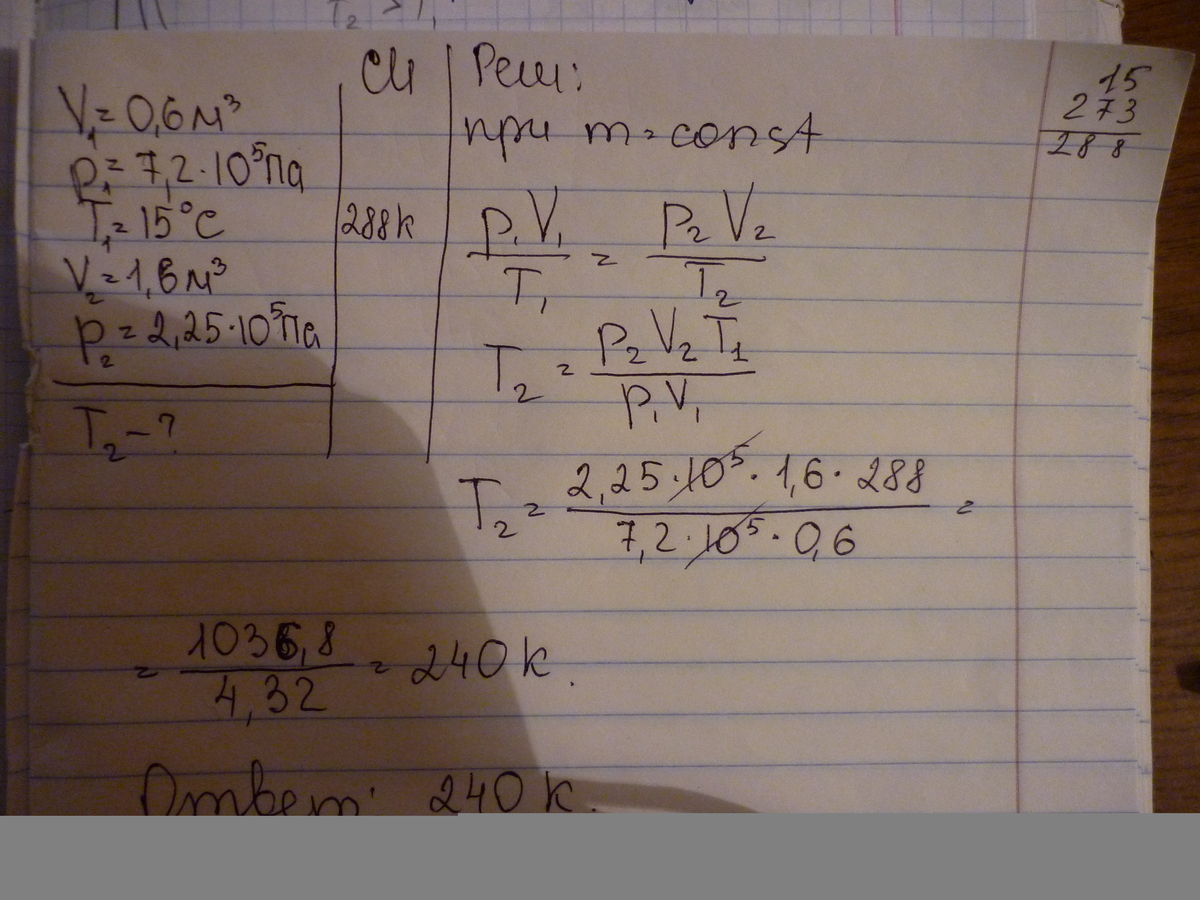 T₂ > T₁
СИ
V₁ = 0,6 м³
p₁ = 7,2·10⁵ Па
T₁ = 15°C
288К
V₂ = 1,6 м³
p₂ = 2,25·10⁵ Па
T₂ - ?
Реш:
при m = const
p₁V₁/T₁ = p₂V₂/T₂
T₂ = p₂V₂T₁/p₁V₁
T₂ = 2,25·10⁵·1,6·288/7,2·10⁵·0,6 =
= 1036,8/4,32 = 240К.
Ответ: 240К.
15
273
288